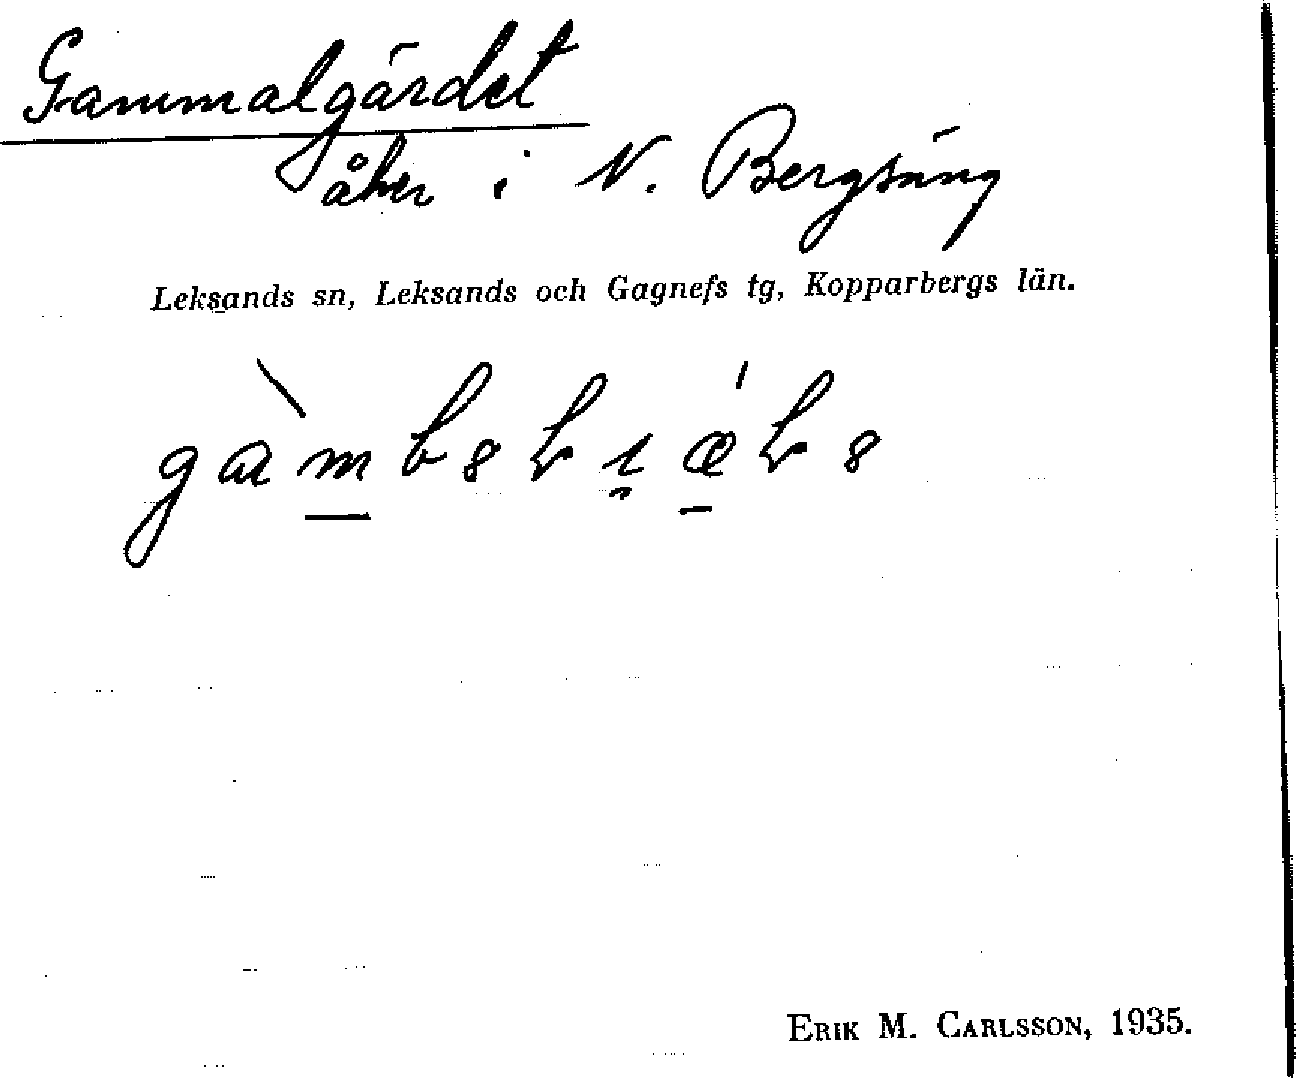 Gammalgärdet
åker i N. Bergsäng
Leksands sn, Leksands och Gagnefs tg, Kopparbergs län.
ERIK M. CARLSSON, 1935.